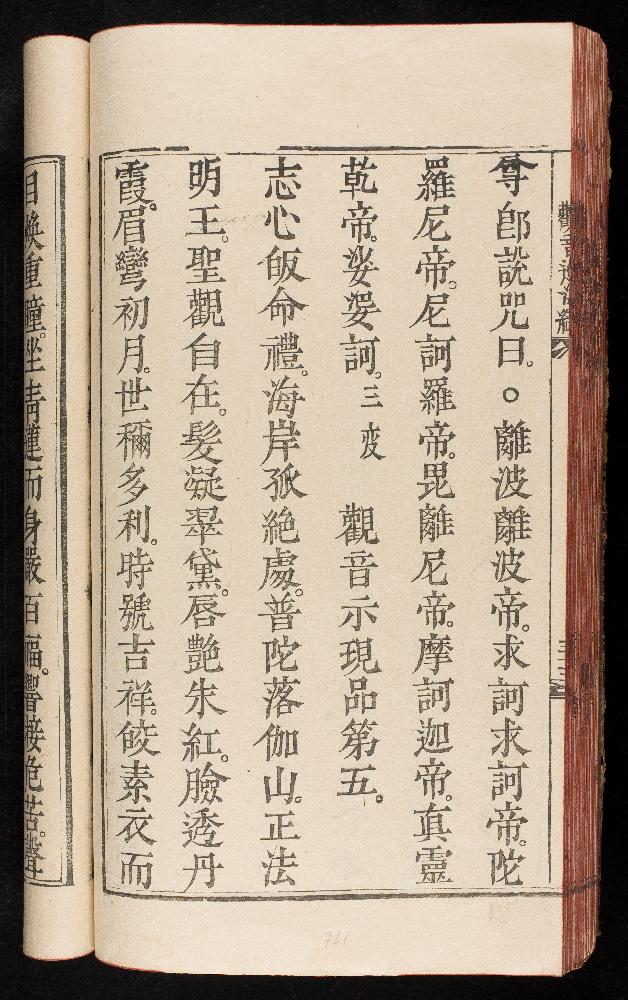 尊卽說咒曰。○離波離波帝。求訶求訶帝。陀
羅尼帝。尼訶羅帝。毘離尼帝。摩訶迦帝。真靈
乾帝。娑婆訶。三变 觀音示現品第五。
志心皈命禮。海岸孤絕處。普陀落伽山。正法
明王。聖觀自在。髮凝翠黛。唇艷朱紅。臉透丹
霞。眉彎初月。世稱多利。時號吉祥。皎素衣而
目煥重瞳。坐青蓮而身嚴百福。響接危苦。聲